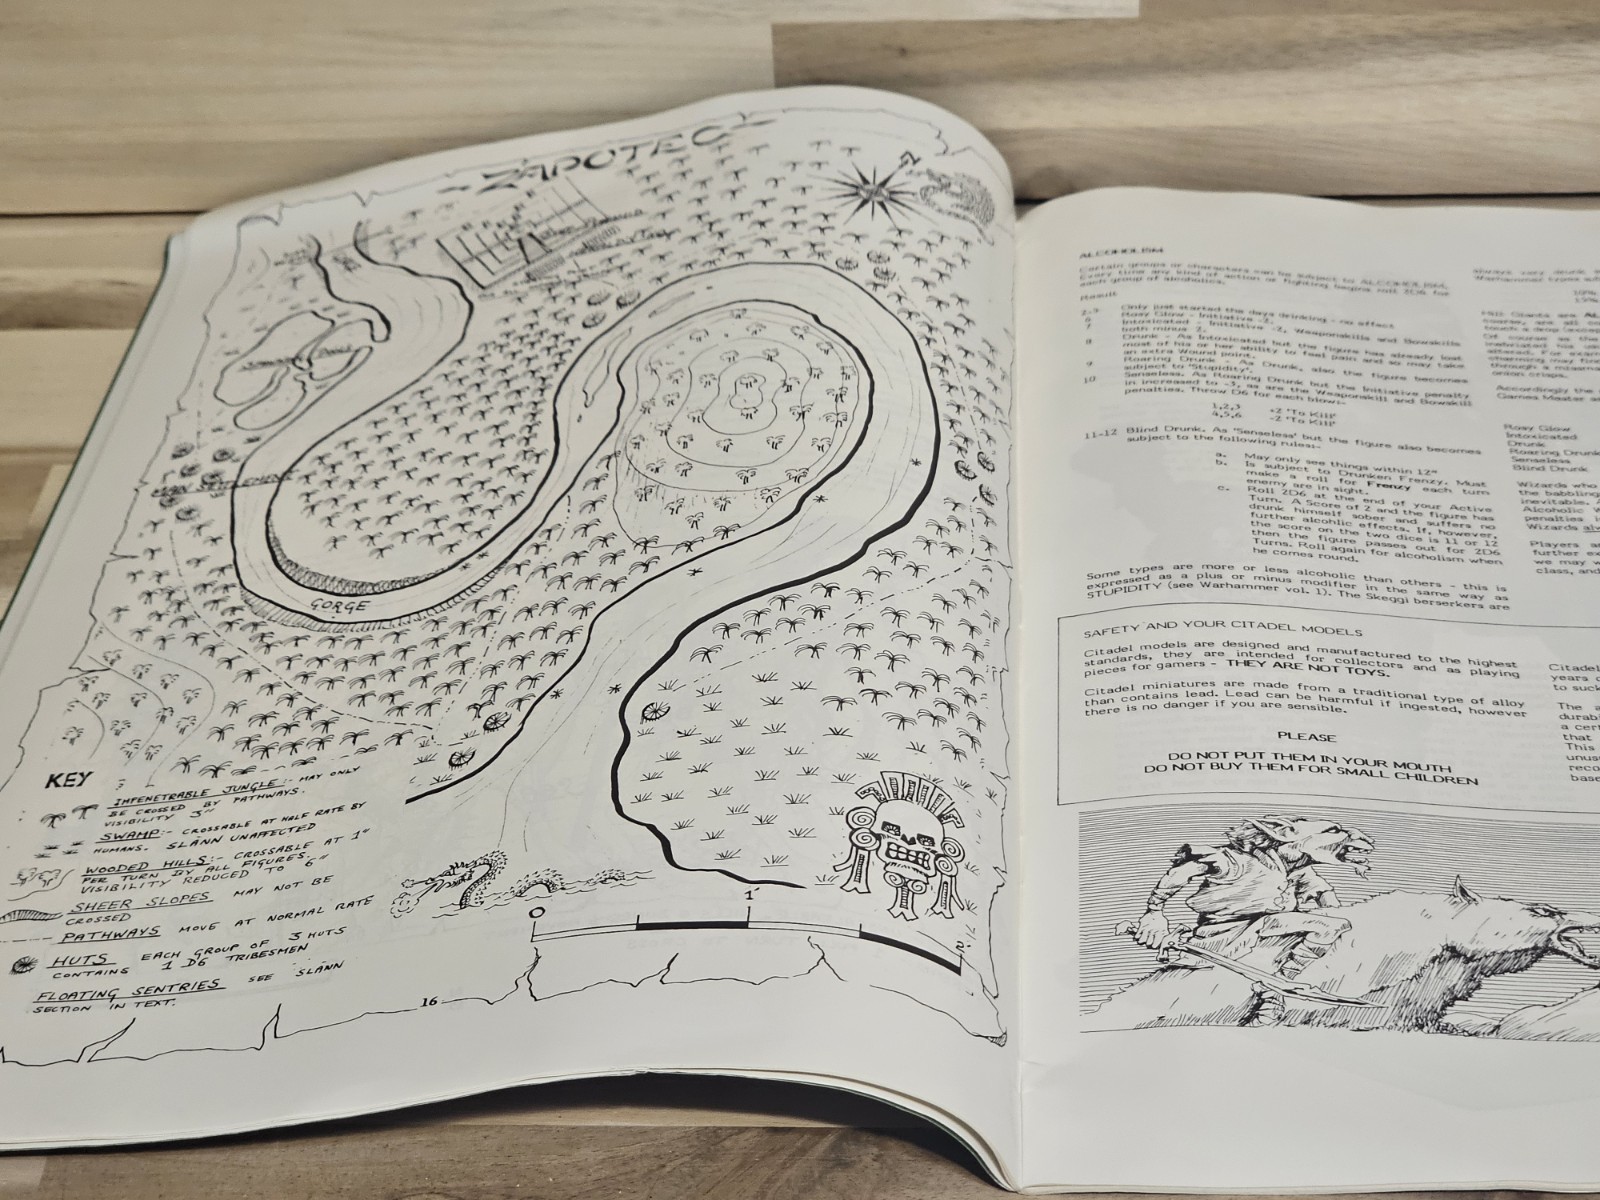 - ZAPOTEC -
MAIN SETTLEMENT
GORGE
KEY
IMPENETRABLE JUNGLE:- MAY ONLY
BE CROSSED BY PATHWAYS.
VISIBILITY 3"
SWAMP:- CROSSABLE AT HALF RATE BY
HUMANS. SLÄNN UNAFFECTED
WOODED HILLS:- CROSSABLE AT 1"
PER TURN BY ALL FIGURES.
VISIBILITY REDUCED TO 6"
SHEER SLOPES MAY NOT BE
CROSSED
PATHWAYS MOVE AT NORMAL RATE
HUTS EACH GROUP OF 3 HUTS
CONTAINS 1 D6 TRIBESMEN
FLOATING SENTRIES SEE SLÄNN
SECTION IN TEXT.
0 1' 2'
16
ALCOHOLISM
Certain groups or characters can be subject to ALCOHOLISM.
Every time any kind of action or fighting begins roll 2D6 for
each group of alcoholics.
Result
2-5 Only just started the days drinking - no effect
6 Rosy Glow - Initiative -2.
7 Intoxicated - Initiative -2, Weaponskills and Bowskills
both minus 2.
8 Drunk - As Intoxicated but the figure has already lost
most of his or her ability to feel pain and so may take
an extra Wound point.
9 Roaring Drunk - As Drunk, also the figure becomes
subject to 'Stupidity'.
10 Senseless. As Roaring Drunk but the Initiative penalty
in increased to -3, as are the Weaponskill and Bowskill
penalties. Throw D6 for each blow:-
1,2,3 +2 'To Kill'
4,5,6 -2 'To Kill'
11-12 Blind Drunk. As 'Senseless' but the figure also becomes
subject to the following rules:-
a. May only see things within 12"
b. Is subject to Drunken Frenzy. Must
make a roll for Frenzy each turn
enemy are in sight.
c. Roll 2D6 at the end of your Active
Turn. A Score of 2 and the figure has
drunk himself sober and suffers no
further alcohlic effects. If, however,
the score on the two dice is 11 or 12
then the figure passes out for 2D6
Turns. Roll again for alcoholism when
he comes round.
Some types are more or less alcoholic than others - this is
expressed as a plus or minus modifier in the same way as
STUPIDITY (see Warhammer vol. 1). The Skeggi berserkers are
SAFETY AND YOUR CITADEL MODELS
Citadel models are designed and manufactured to the highest
standards, they are intended for collectors and as playing
pieces for gamers - THEY ARE NOT TOYS.
Citadel miniatures are made from a traditional type of alloy
than contains lead. Lead can be harmful if ingested, however
there is no danger if you are sensible.
PLEASE
DO NOT PUT THEM IN YOUR MOUTH
DO NOT BUY THEM FOR SMALL CHILDREN
always very drunk
10%
15%
Hill Giants are
course, are all
touch a drop
Of course as the
altered. For
charming may
through a
onion crisps.
Accordingly the
Games Master
Rosy Glow
Intoxicated
Drunk
Roaring Drunk
Senseless
Blind Drunk
Wizards who
the babbling
inevitable.
Alcoholic
penalties
Wizards
Players
further
we may
class, and
Citadel
years
to suck
The
a
that
This
base